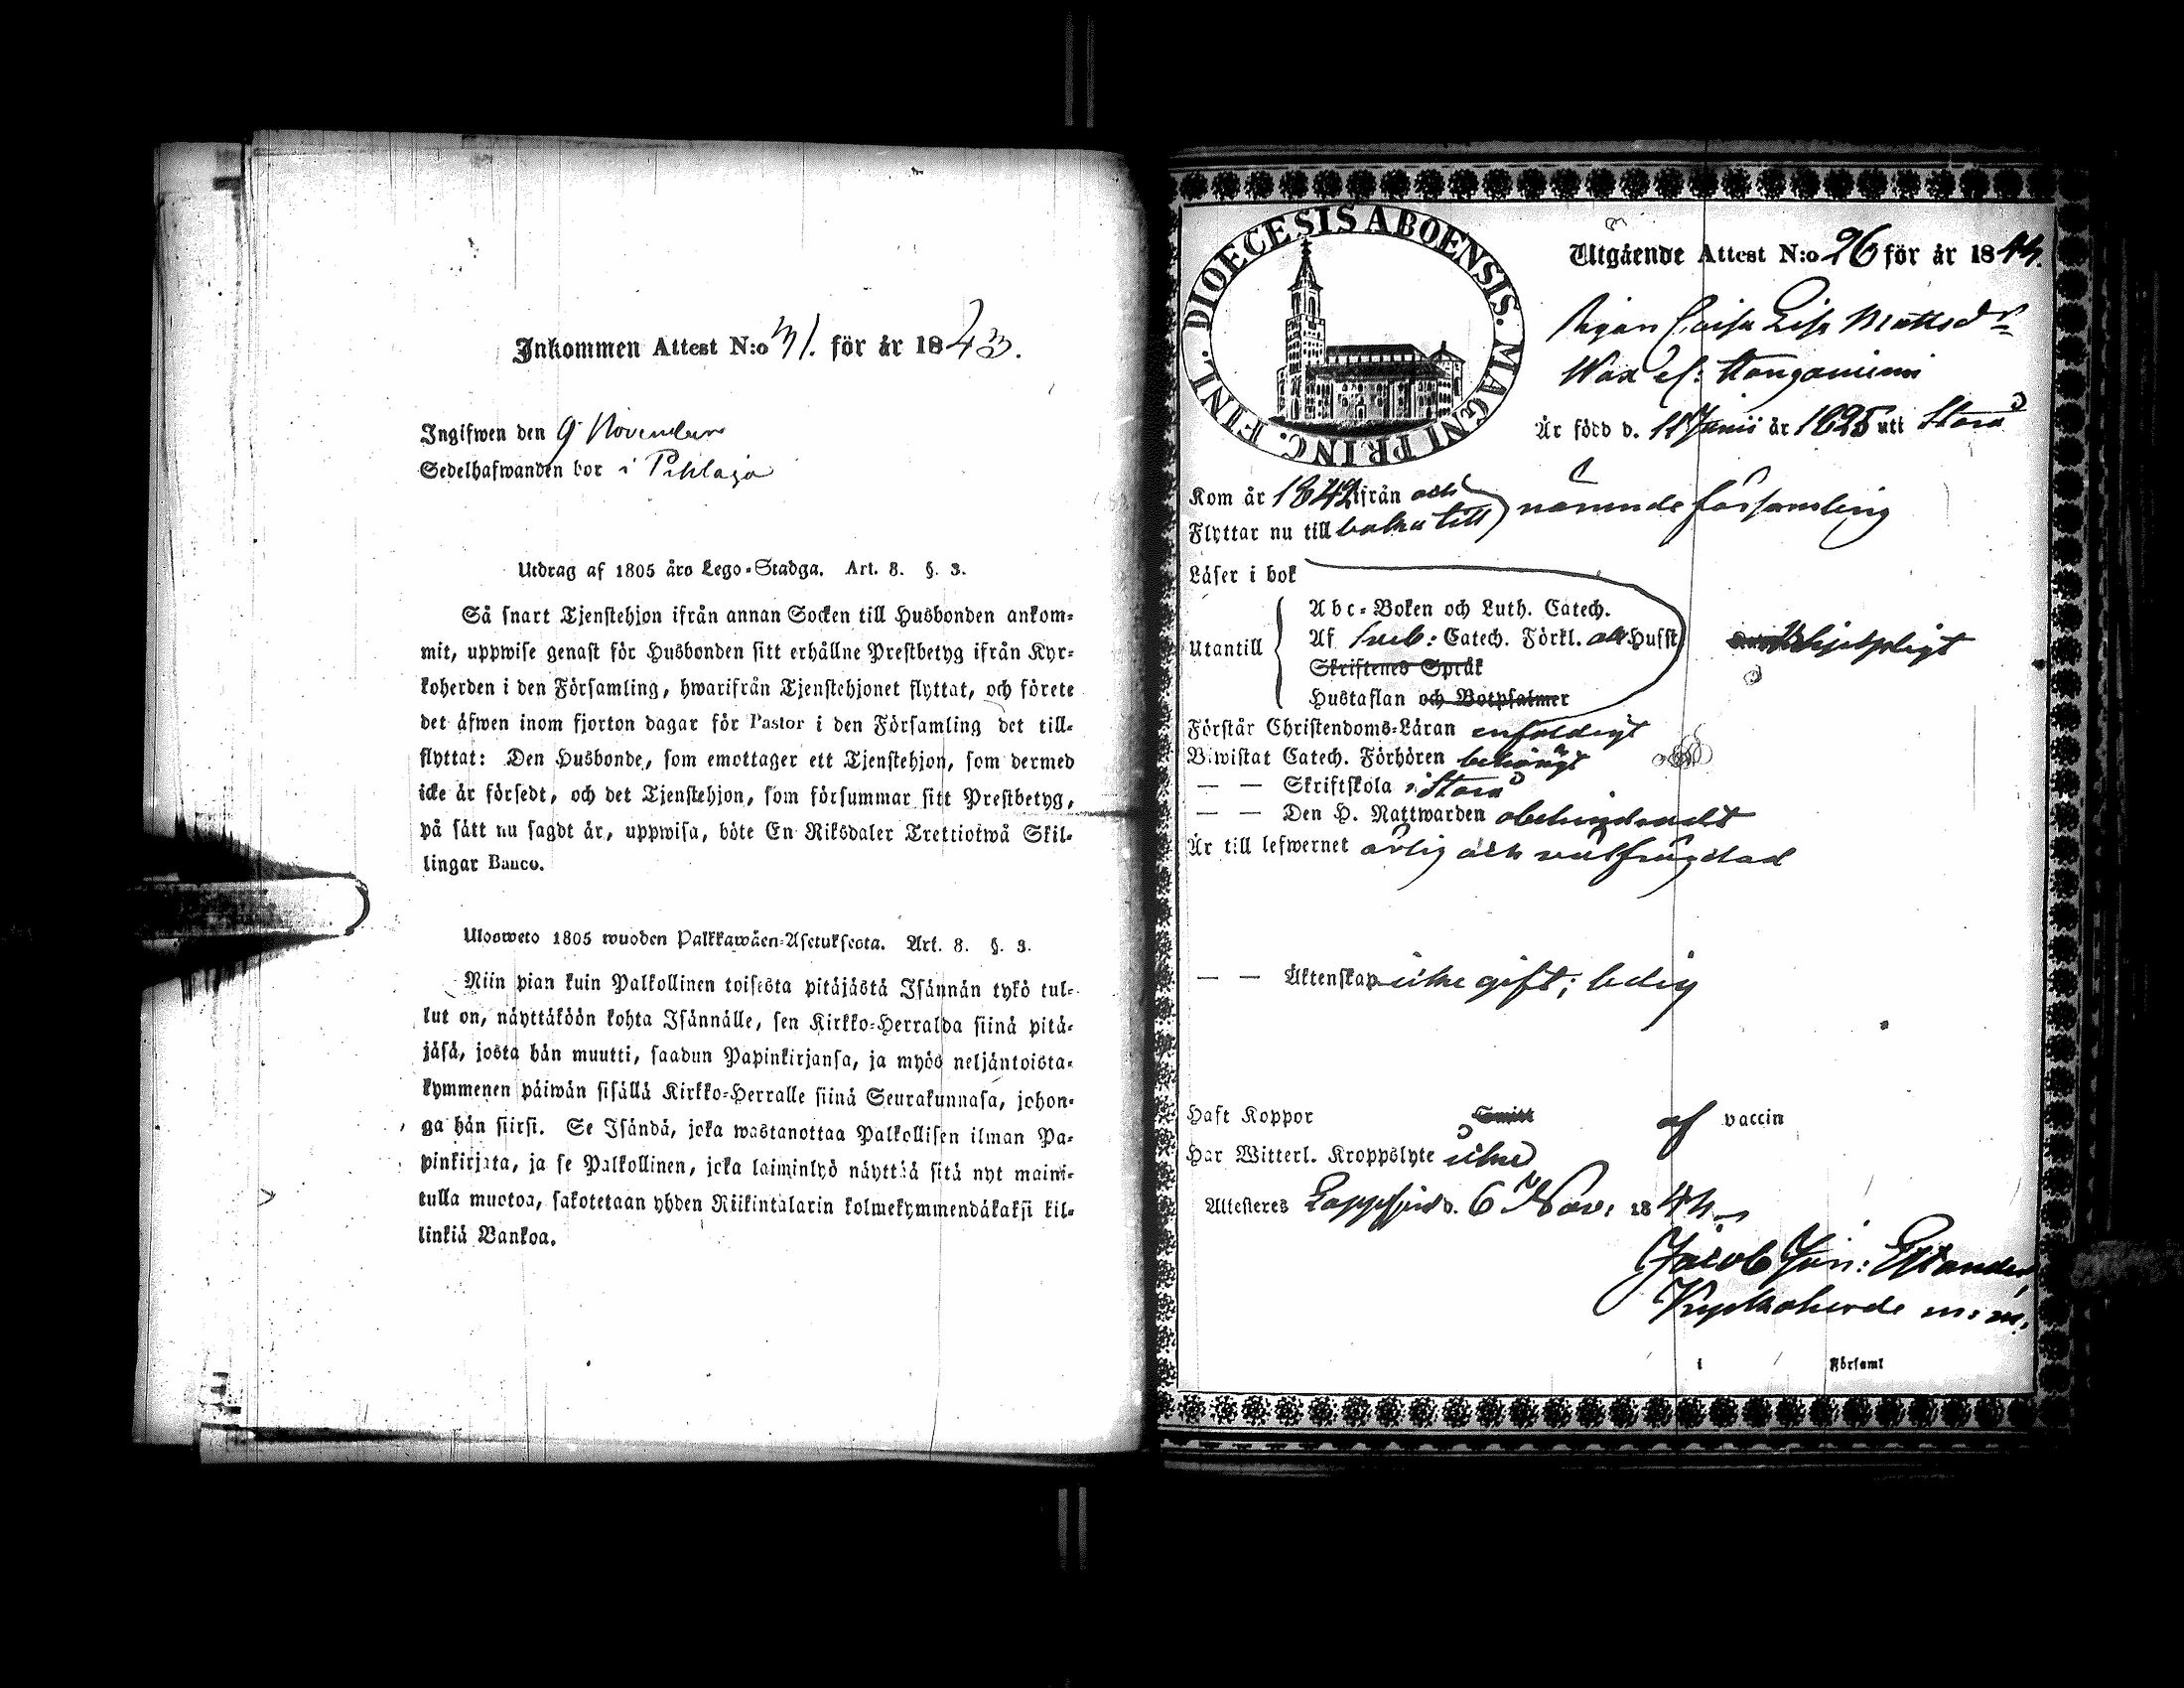 Inkommen Attest N:o 31. för år 1843.
Ingifwen den 9 November
Sedelhafwanden bor i Pihlaja
Utdrag af 1805 års Lego-Stadga. Art. 8. §. 3.
Så snart Tjenstehjon ifrån annan Socken till Husbonden ankom-
mit, uppwise genast för Husbonden sitt erhållne Prestbetyg ifrån Kyr-
koherden i den Församling, hwarifrån Tjenstehjonet flyttat, och förete
det äfwen inom fjorton dagar för Pastor i den Församling det till-
flyttat: Den Husbonde, som emottager ett Tjenstehjon, som dermed
icke är försedt, och det Tjenstehjon, som försummar sitt Prestbetyg,
på sätt nu sagdt är, uppwisa, böte En Riksdaler Trettiotwå Skil-
lingar Banco.
Ulosweto 1805 wuoden Palkkawäen-Asetuksesta. Art. 8. §. 3.
Niin pian kuin Palkollinen toisesta pitäjästä Isännän tykö tul-
lut on, näyttäköön kohta Isännälle, sen Kirkko-Herralda siinä pitä-
jäsä, josta hän muutti, saadun Papinkirjansa, ja myös neljäntoista-
kymmenen päiwän sisällä Kirkko-Herralle siinä Seurakunnasa, johon-
ga hän siirsi. Se Isändä, joka wastanottaa Palkollisen ilman Pa-
pinkirjata, ja se Palkollinen, joka laiminlyö näyttää sitä nyt maini-
tulla muotoa, sakotetaan yhden Riikintalarin kolmekymmendäkaksi kil-
linkiä Bankoa.
DIOECESIS ABOENSIS. MAGNI PRINC. FINL.
Utgående Attest N:o 26 för år 1844.
Pigan Caisa Lisa Mattsdr
Är född d. 11 Junii år 1825 uti Storå
Kom år 1842 ifrån och
Flyttar nu till baka till nämnde församling
Läser i bok
Abc-Boken och Luth. Catech.
Utantill Af Sveb: Catech. Förkl. och Husst
Skriftenes Språk
Hustaflan och Botpsalmer
Förstår Christendoms-Läran enfaldigt
Biwistat Catech. Förhören behörigt
— — Skriftskola i Storå
— — Den H. Nattwarden obehindradt
Är till lefwernet ärlig och välfrägdad
— — Äktenskap icke gift; ledig
Haft Koppor af vaccin
Har Witterl. Kroppslyte icke
Attesteres Lappfjerd d. 6 Nov. 1844.
Jacob Jun: Estlander,
Kyrkoherde m: m.
i Församl